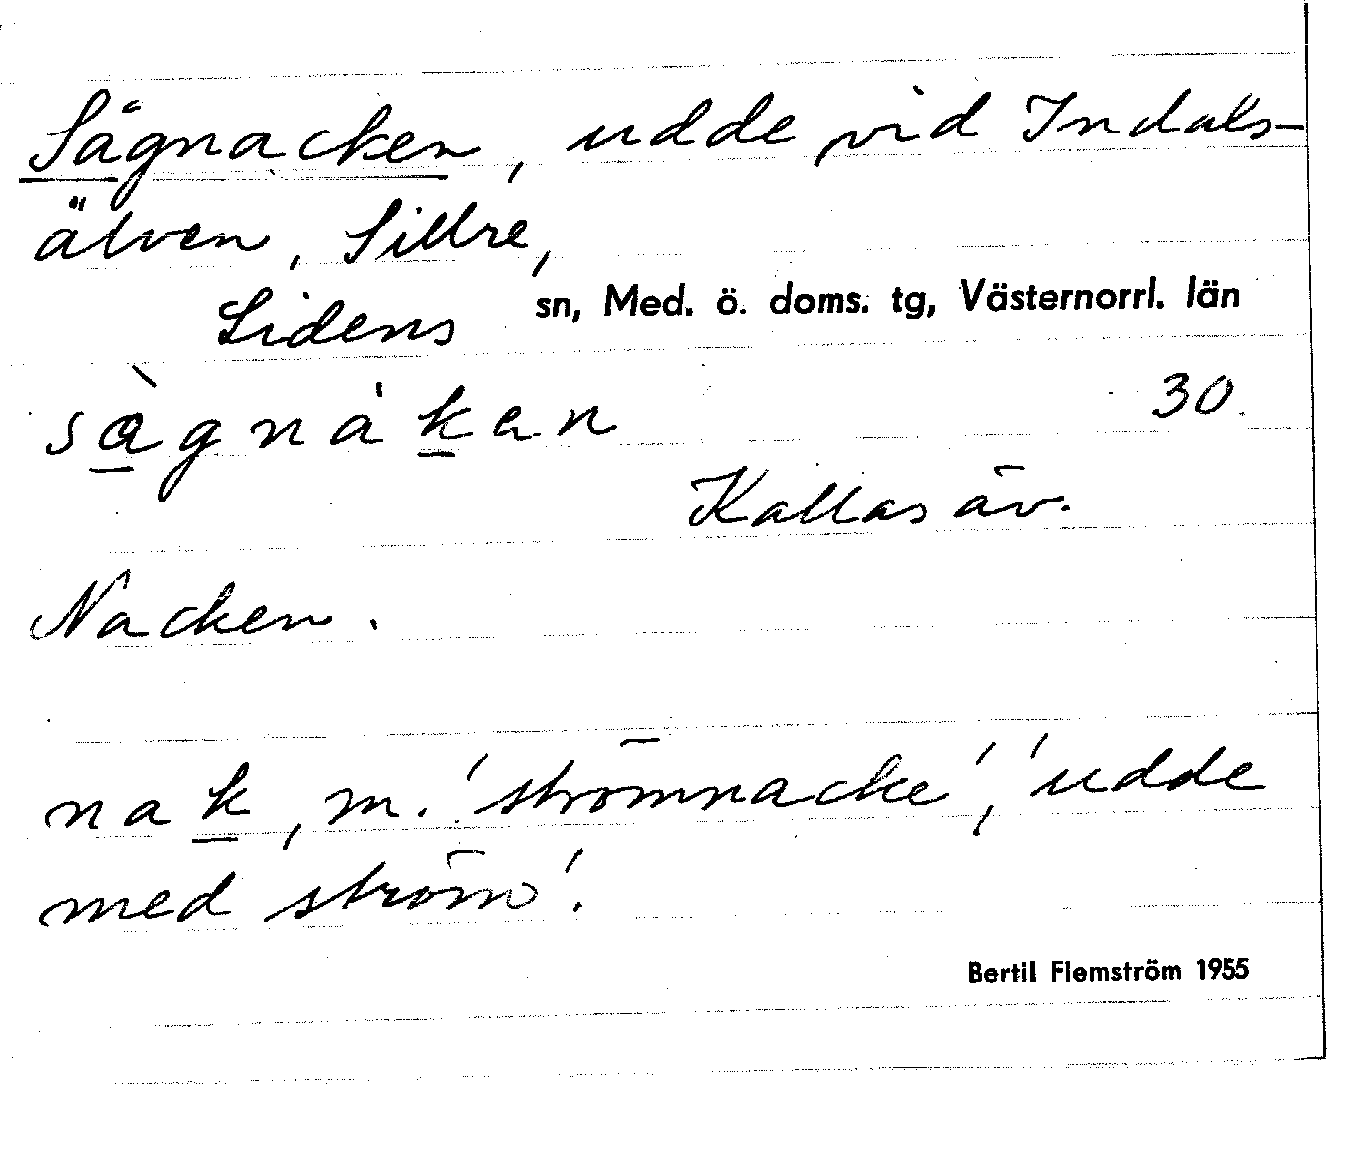 Sågnacken, udde vid Indals-
älven, Sillre,
Lidens sn, Med. ö. doms. tg, Västernorrl. län
sàgnákan 30.
Kallas äv.
Nacken.
nak, m. 'strömnacke', 'udde
med ström'.
Bertil Flemström 1955